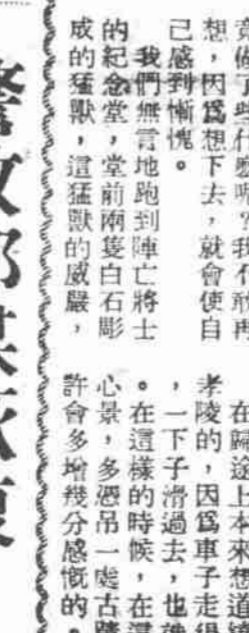 竟做了些什麼呢？我不敢再
想，因爲想下去，就會使自
己感到慚愧。
我們無言地跑到陣亡將士
的紀念堂，堂前兩隻白石彫
成的猛獸，這猛獸的威嚴，
在歸途上本來想道
孝陵的，因爲車子走得
，一下子滑過去，也
。在這樣的時候，在這
心景，多憑吊一處古蹟
許會多增幾分感慨的。